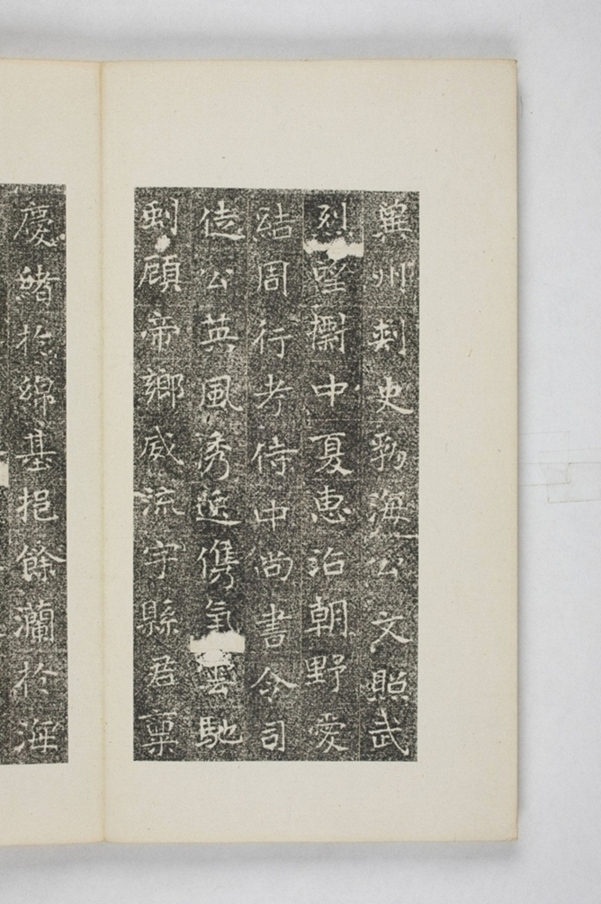 冀州刺史勃海公文照武
烈望中夏惠洽朝野愛
結周行考侍中尚書令司
徒公英風秀逸儁氣雲馳
剋顧帝鄉威流宇縣君稟
慶緒於綿基挹餘瀾於海